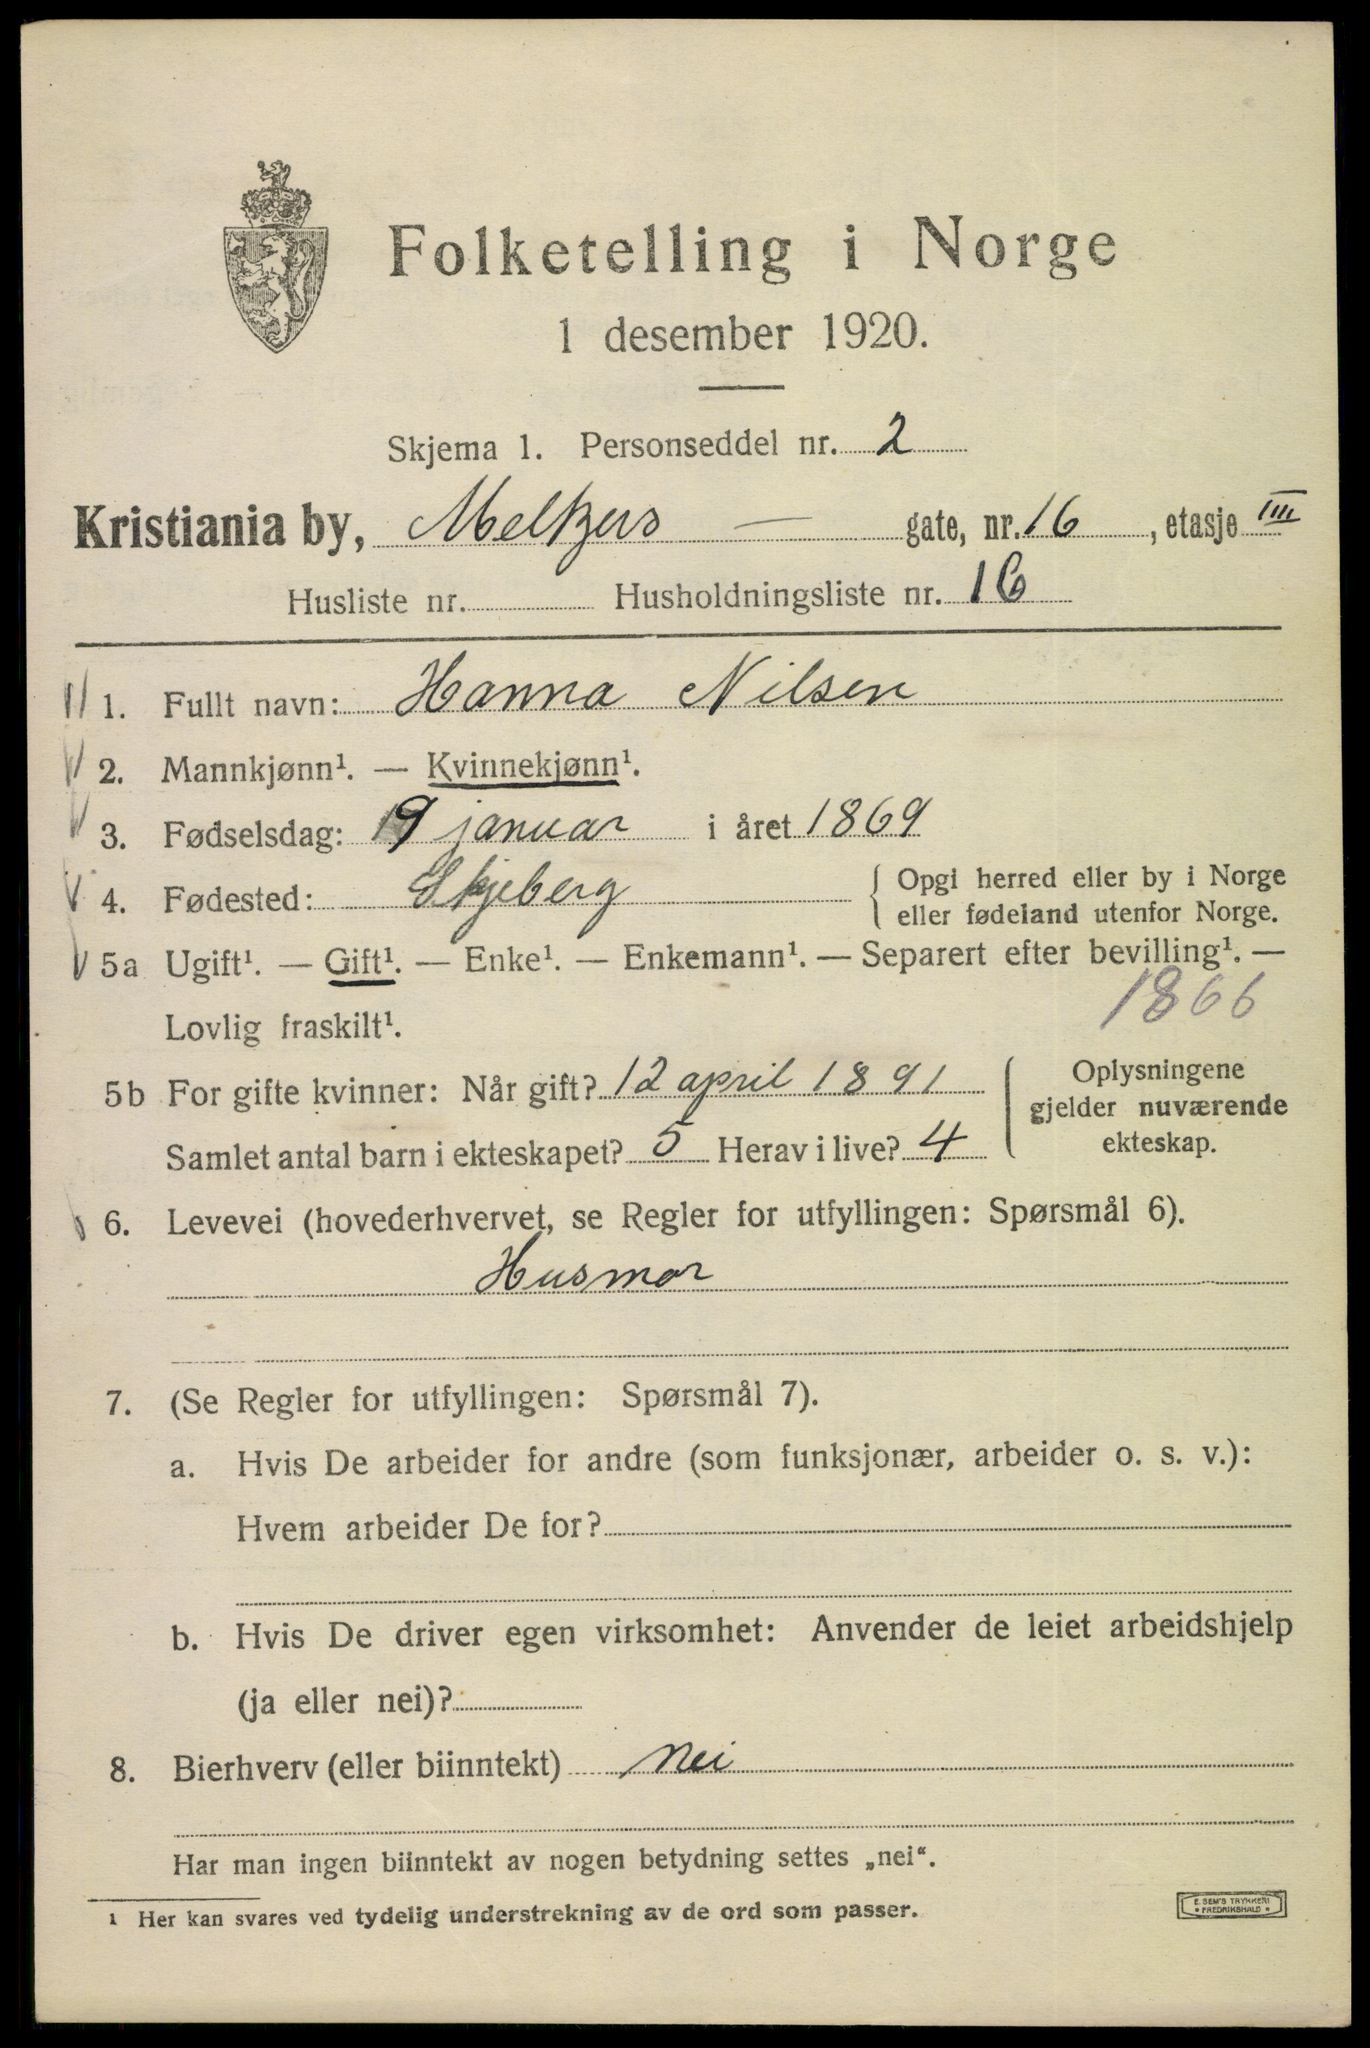 Folketelling i Norge
1 desember 1920.
Skjema 1. Personseddel nr. 2
Kristiania by, Meltzers — gate, nr. 16, etasje IIII
Husliste nr. Husholdningsliste nr. 16
1. Fullt navn: Hanna Nilsen
2. Mannkjønn¹. — Kvinnekjønn¹.
3. Fødselsdag: 9 januar i året 1869
4. Fødested: Skjeberg { Opgi herred eller by i Norge
eller fødeland utenfor Norge.
5a Ugift¹. — Gift¹. — Enke¹. — Enkemann¹. — Separert efter bevilling¹. —
Lovlig fraskilt¹. 1866
5b For gifte kvinner: Når gift? 12 april 1891
Samlet antal barn i ekteskapet? 5 Herav i live? 4
Oplysningene
gjelder nuværende
ekteskap.
6. Levevei (hovederhvervet, se Regler for utfyllingen: Spørsmål 6).
Husmor
7. (Se Regler for utfyllingen: Spørsmål 7).
a. Hvis De arbeider for andre (som funksjonær, arbeider o. s. v.):
Hvem arbeider De for?
b. Hvis De driver egen virksomhet: Anvender de leiet arbeidshjelp
(ja eller nei)?
8. Bierhverv (eller biinntekt) nei
Har man ingen biinntekt av nogen betydning settes „nei“.
¹ Her kan svares ved tydelig understrekning av de ord som passer.
E. SEM'S TRYKKERI
• FREDRIKSHALD •